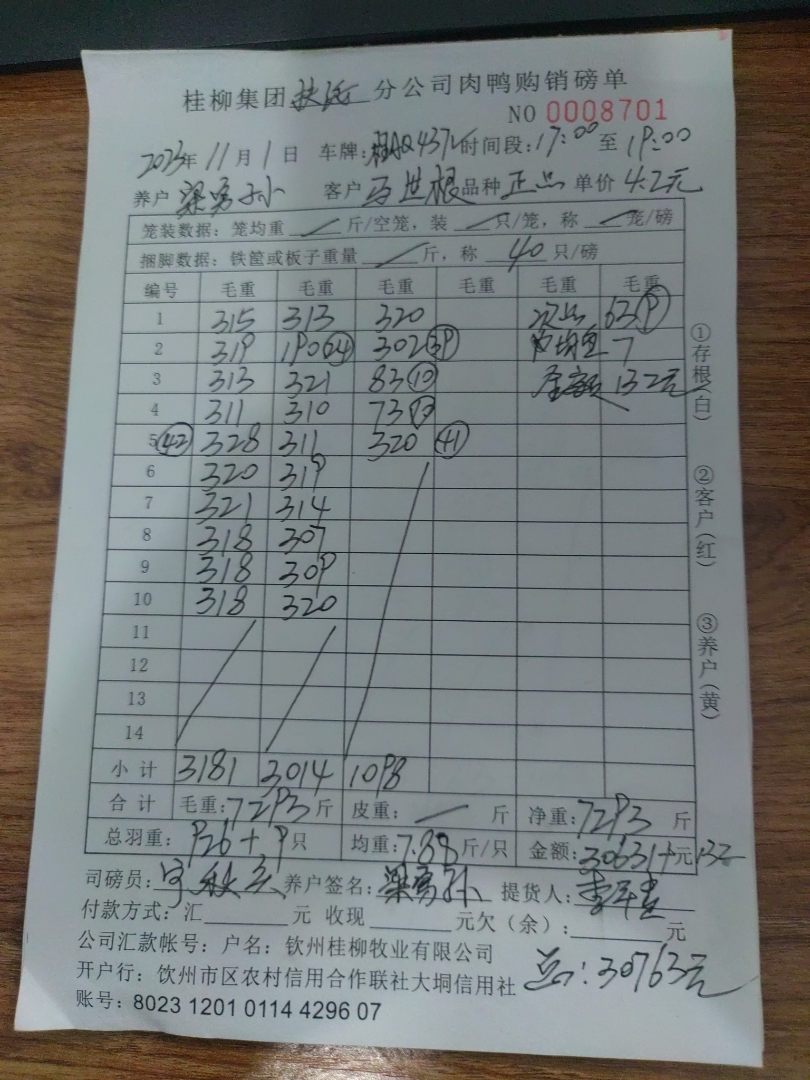 桂柳集团 分公司肉鸭购销磅单
NO 0008701
2023年 11月 1日 车牌:桂AQ437L 时间段:17:00 至 19:00
养户 梁勇孙 客户 马世根 品种 正品 单价 4.2元
笼装数据: 笼均重 / 斤/空笼, 装 / 只/笼, 称 / 笼/磅
捆脚数据: 铁筐或板子重量 / 斤, 称 40 只/磅
编号 毛重 毛重 毛重 毛重 毛重 毛重
1 315 313 320 次品 63⑨
2 319 190㉔ 302㊴ 均重 7
3 313 321 83⑩ 金额 132元
4 311 310 73
5㊷ 328 311 320 ㊶
6 320 319
7 321 314
8 318 307
9 318 309
10 318 320
11
12
13
14
小计 3181 3014 1098
合计 毛重:7293斤 皮重: / 斤 净重:7293 斤
总羽重: 926+9只 均重:7.88斤/只 金额:30631+元132
司磅员: 养户签名:梁勇孙 提货人:
付款方式: 汇 元 收现 元欠(余): 元
公司汇款帐号: 户名: 钦州桂柳牧业有限公司
开户行: 钦州市区农村信用合作联社大垌信用社
总:30763元
账号: 8023 1201 0114 4296 07
①存根(白)
②客户(红)
③养户(黄)